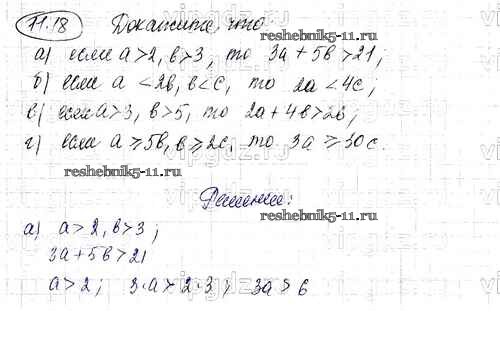 11.18 Докажите, что
а) если a > 2, b > 3, то 3a + 5b > 21;
б) если a < 2b, b < c, то 2a < 4c;
reshebnik5-11.ru
в) если a > 3, b > 5, то 2a + 4b > 26;
г) если a ⩾ 5b, b ⩾ 2c, то 3a ⩾ 30c.
reshebnik5-11.ru
Решение:
reshebnik5-11.ru
а) a > 2, b > 3;
3a + 5b > 21
a > 2; 3·a > 2·3; 3a > 6